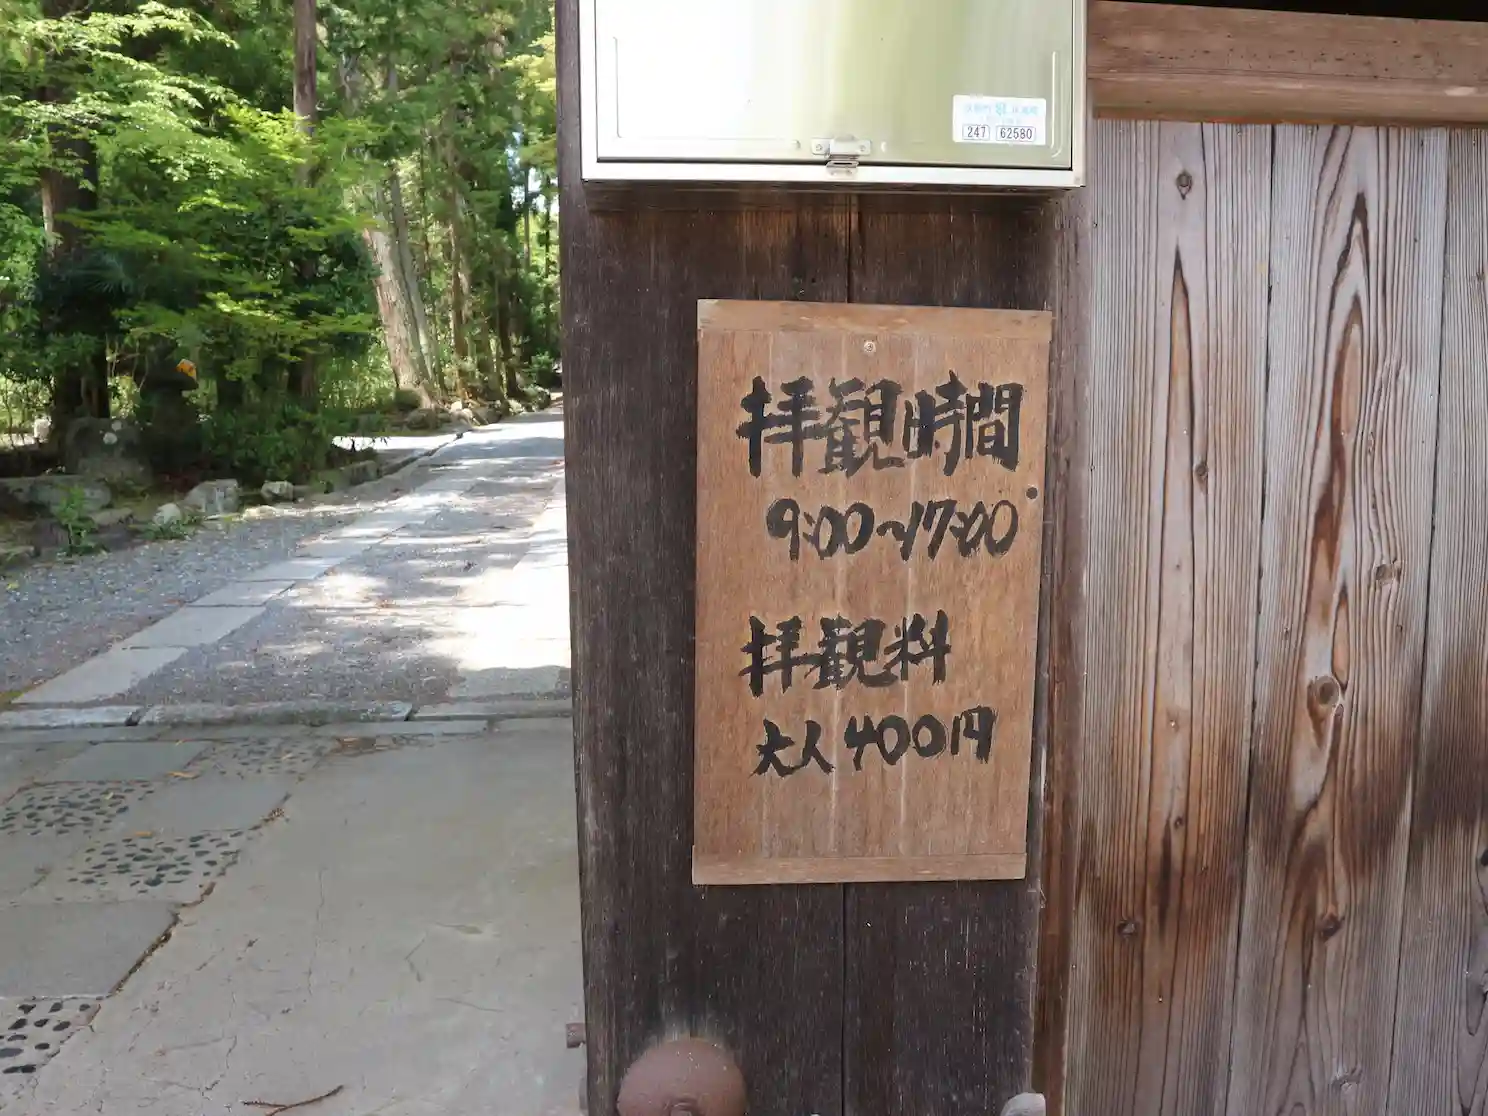 247 62580
拝観時間
9:00~17:00
拝観料
大人400円